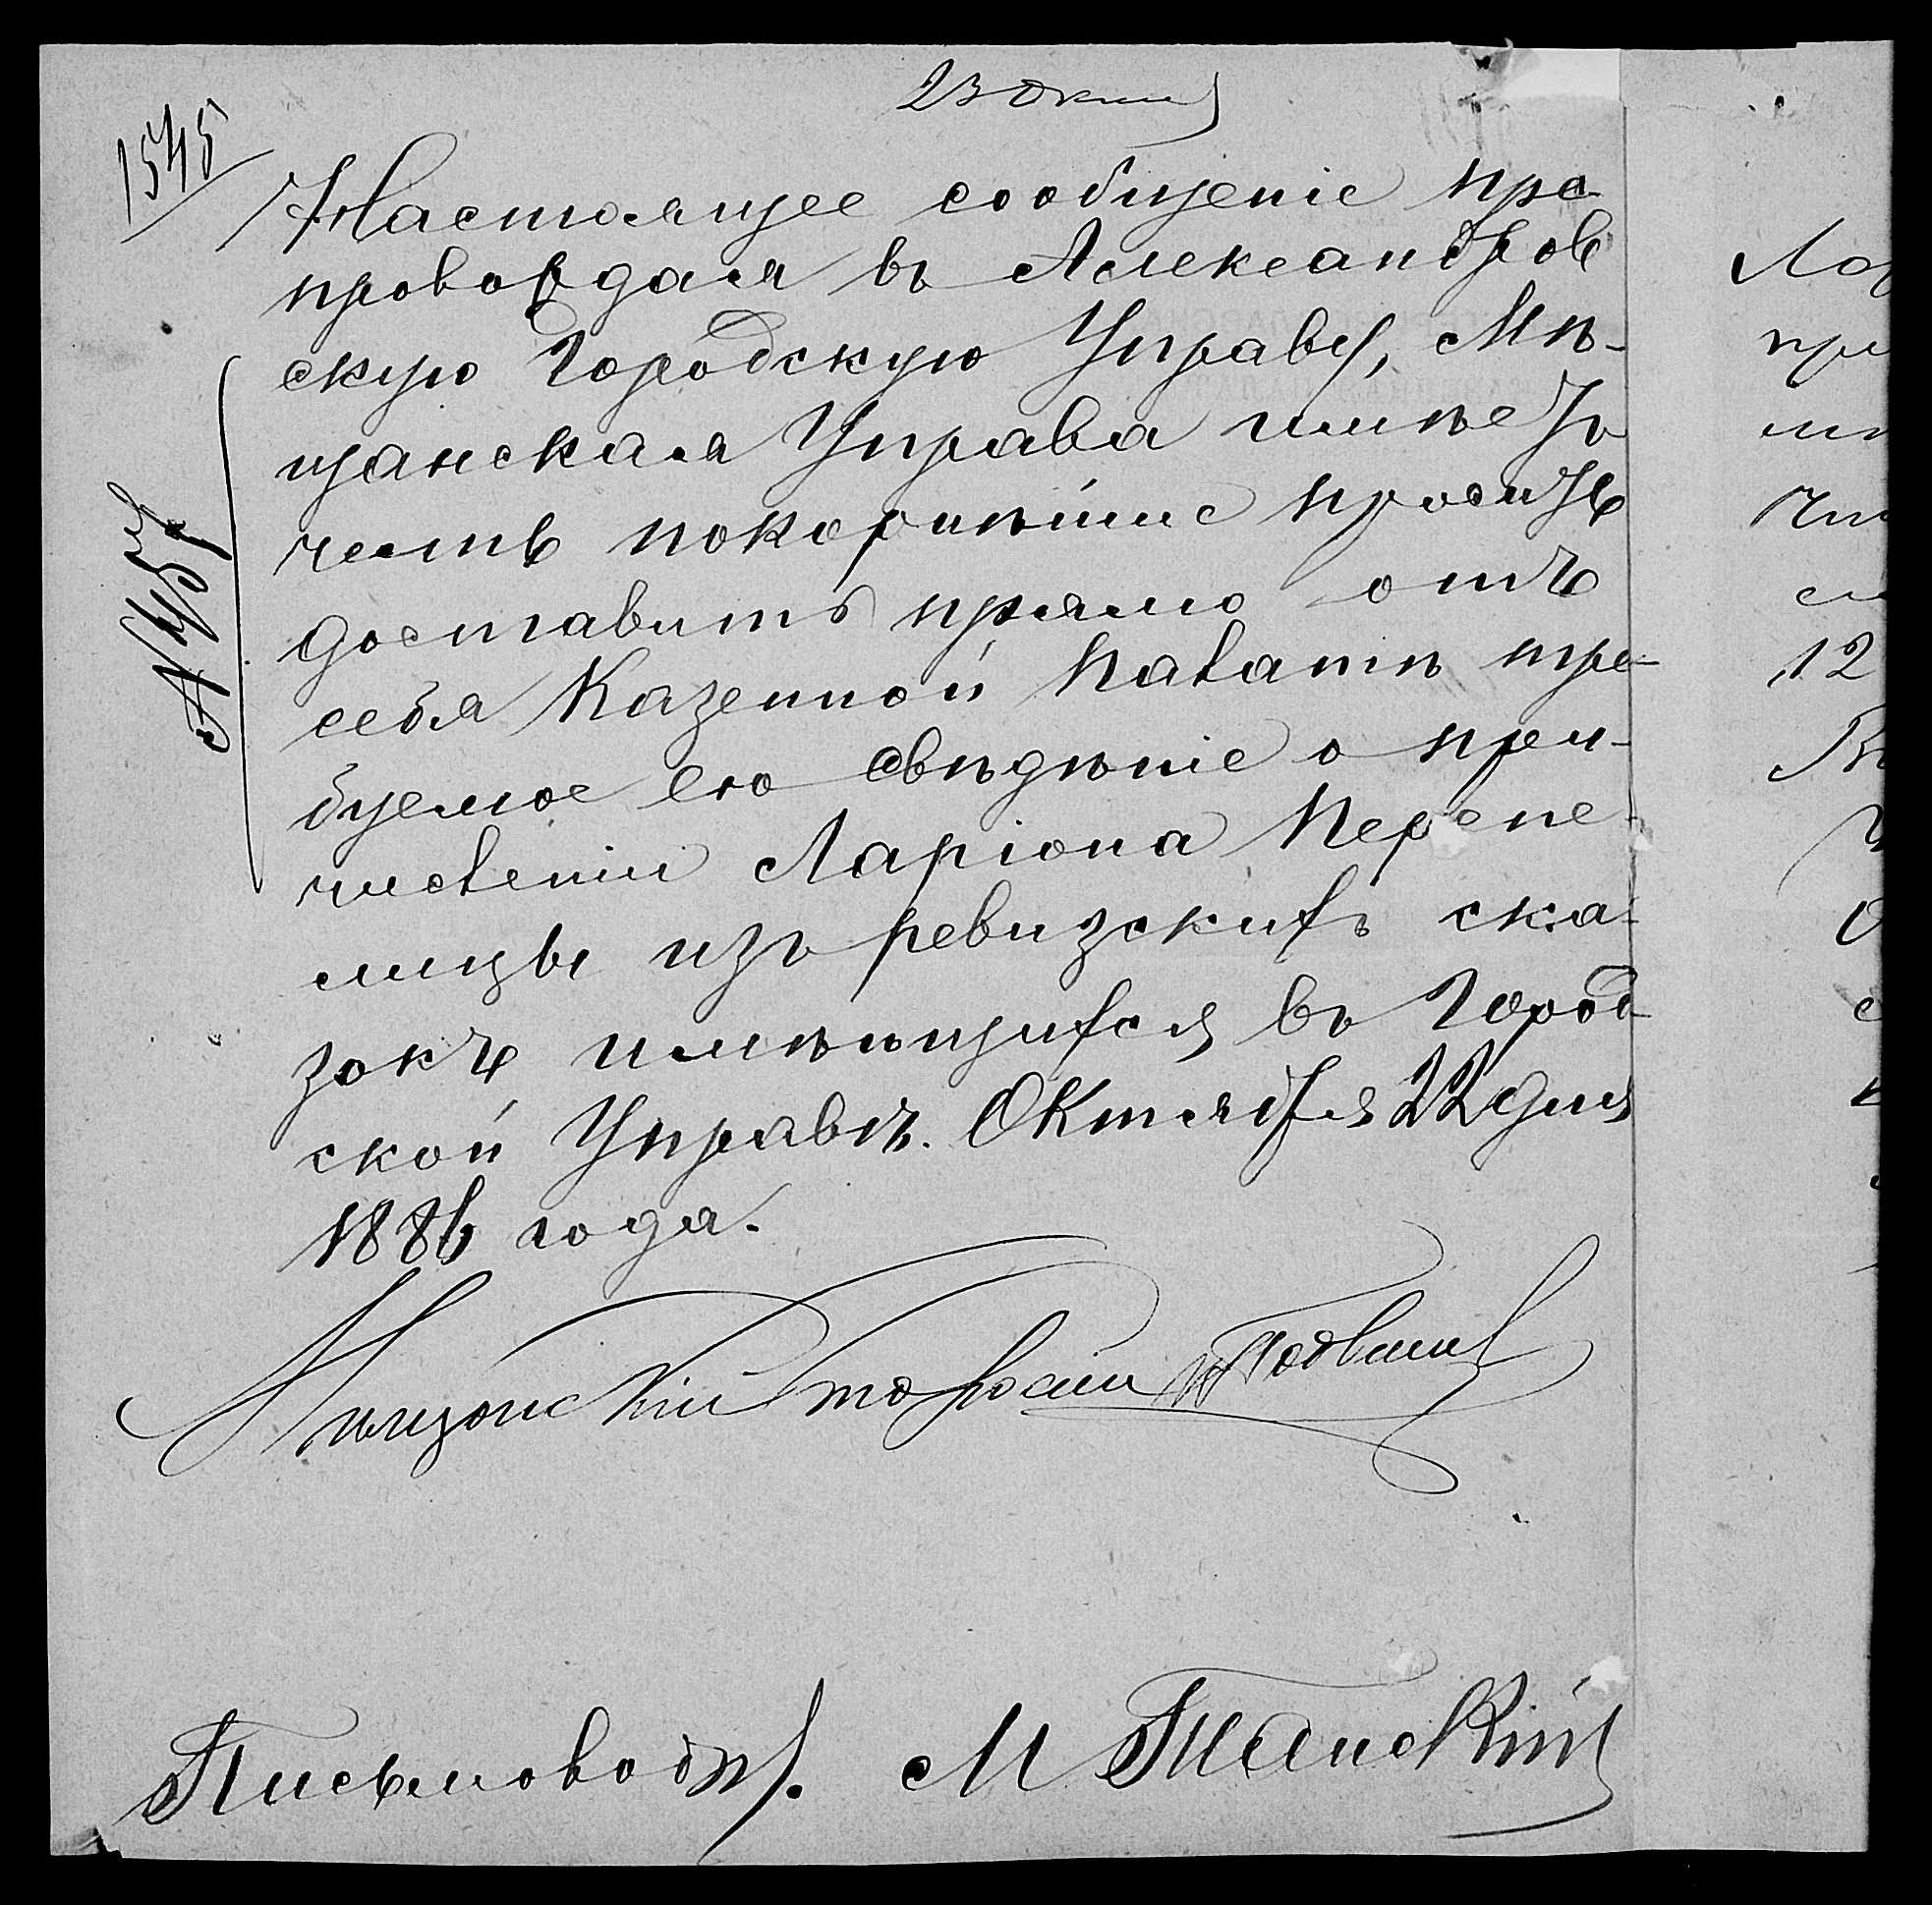 23 Окт
1545
Настоящее сообщеніе пре-
провождая въ Александров
скую Городскую Управу, Мѣ-
щанская Управа имѣетъ
честь покорнѣйше просить
доставить прямо отъ
себя Казенной Палатѣ тре-
буемое ею свѣдѣніе о пери-
численіи Ларіона Перепе-
лицы изъ ревизскихъ ска-
зокъ имѣющихся въ Город-
ской Управѣ. Октября 22 дня
1886 года.
Мѣщанскій Староста
Письмоводит. М Тканскій
Ло
при
12